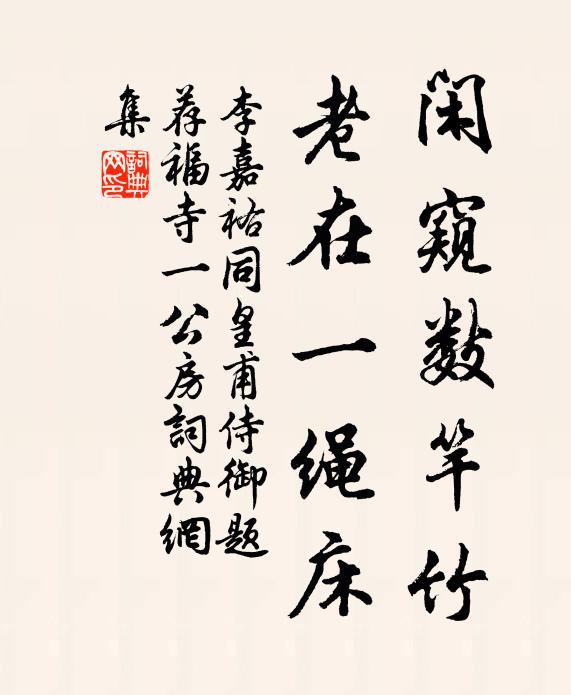 闲窥数竿竹
老在一绳床
李嘉祐同皇甫侍御题
荐福寺一公房詞典網
集
詞典
网印